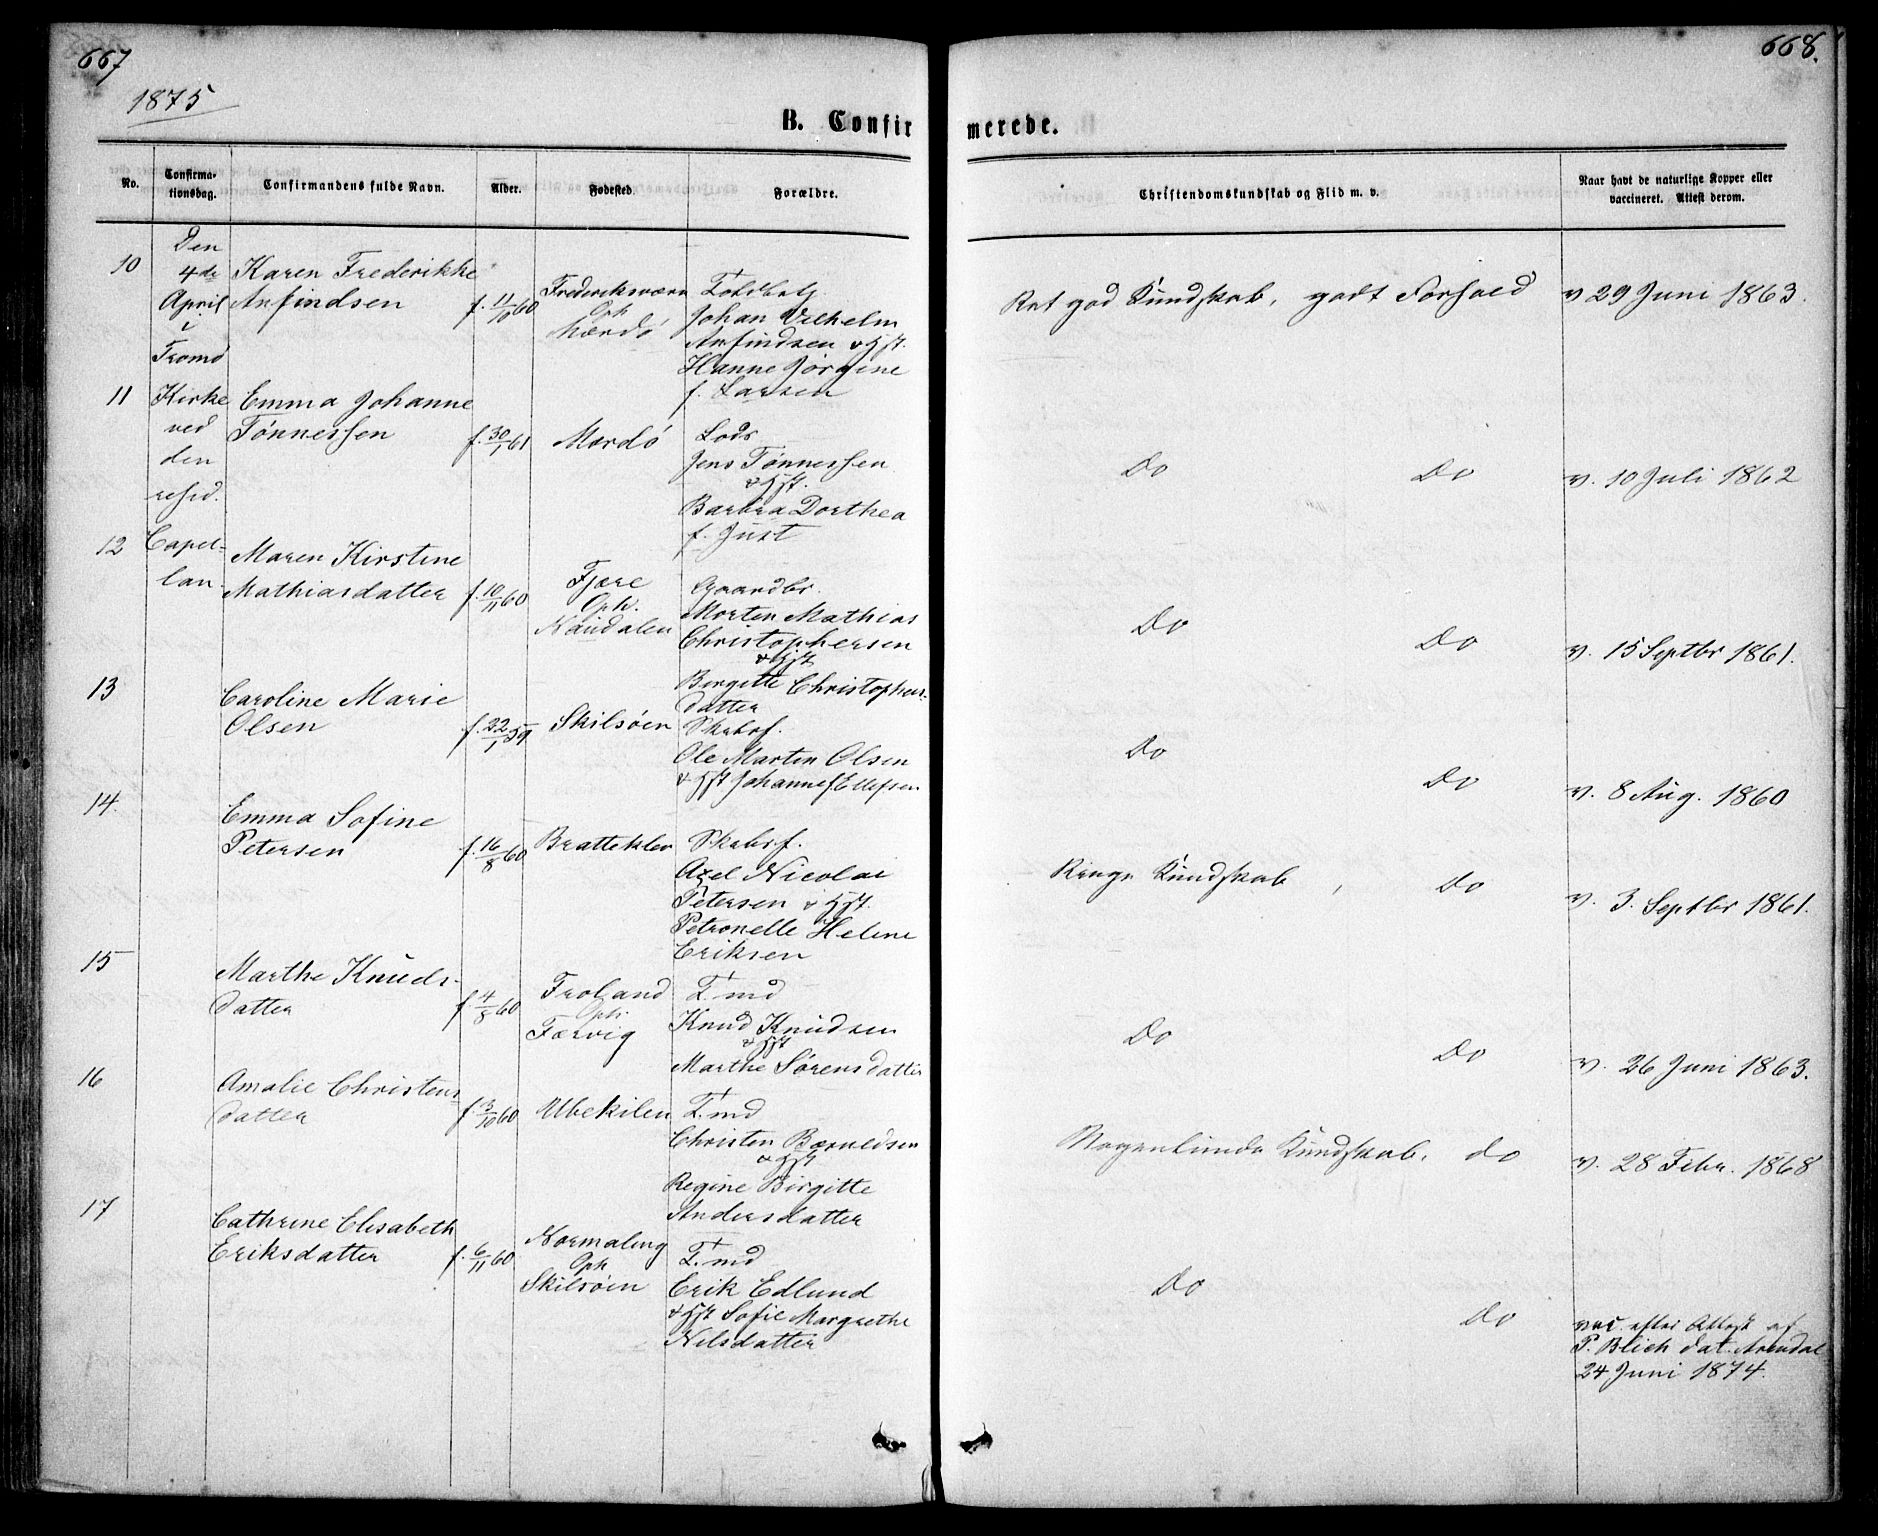 667
668.
1875
B. Confir
merede.
No.
Confirma-
tionsdag.
Confirmandens fulde Navn.
Alder.
Fødested.
Forældre.
Christendomskundskab og Flid m. v.
Naar havt de naturlige Kopper eller
vaccineret. Attest derom.
Den
4de
April
i
Tromø
Kirke
ved
den
resid.
Capel-
lan.
10
Karen Frederikke
Anfindsen
f. 11/10 60
Frederiksværn
Oph
Mærdø
Toldbetj.
Johan Vilhelm
Anfindsen & Hst.
Hanne Jørgine
f. Larsen
Ret god Kundskab, godt Forhold
v 29 Juni 1863.
11
Emma Johanne
Tønnessen
f. 30/1 61
Mærdø
Lods
Jens Tønnessen
& Hst.
Barbra Dorthea
f. Just
Do
Do
v. 10 Juli 1862
12
Maren Kirstine
Mathiasdatter
f. 10/11 60
Fjære
Oph.
Naudalen
Gaardbr.
Morten Mathias
Christophersen
& Hst
Birgitte Christophers-
datter
Do
Do
v. 15 Septbr 1861.
13
Caroline Marie
Olsen
f. 22/1 59
Skilsøen
Skibsf.
Ole Martin Olsen
& Hst Johanne Ellefsen
Do
Do
v. 8 Aug. 1860
14.
Emma Sofine
Petersen
f. 16/8 60
Brattekлev
Skibsf.
Axel Nicolai
Petersen & Hst.
Petronelle Helene
Eriksen
Ringe Kundskab, Do
v. 3. Septbr 1861.
15
Marthe Knuds-
datter
f. 4/8 60
Froland
Oph.
Færvig
T.md
Knud Knudsen
& Hst
Marthe Sørensdatter
Do
Do
v. 26 Juni 1863.
16
Amalie Christens-
datter
f. 3/10 60
Ubekilen
T.md
Christen Bærulдsen
& Hst
Regine Birgitte
Andersdatter
Nogenlunde Kundskab, do
v. 28 Febr. 1868
17
Cathrine Elisabeth
Eriksdatter
f. 6/11 60
Normaling
Oph
Skilsøen
T.md
Erik Edlund
& Hst Sofie Margrethe
Nilsdatter
Do
Do
vac. efter Attest af
P. Blich dat. Arendal
24 Juni 1874.